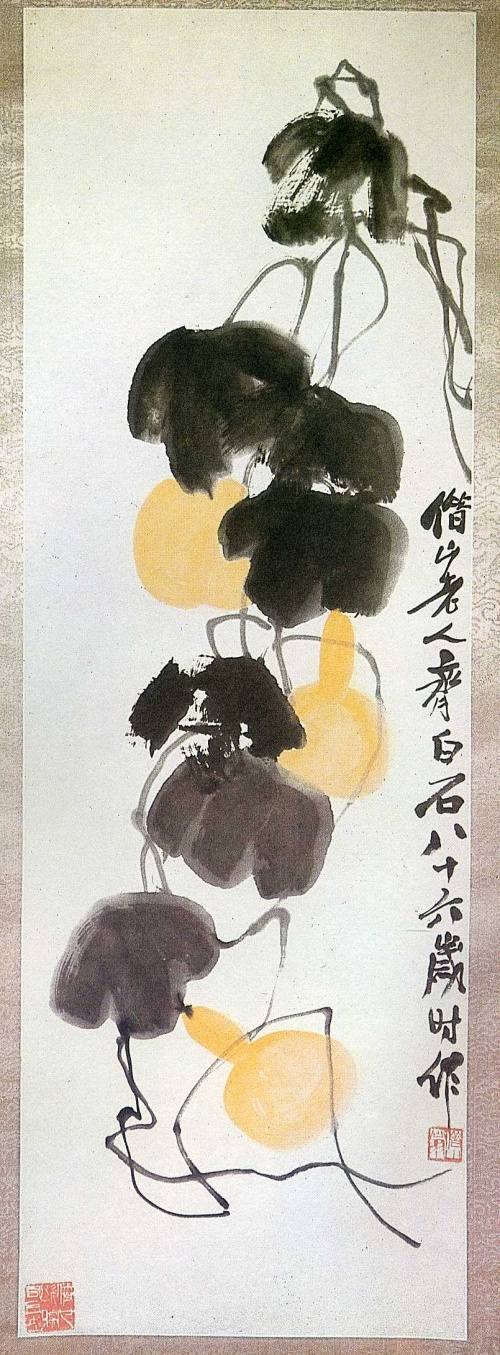 借山老人齊白石八十六歲时作